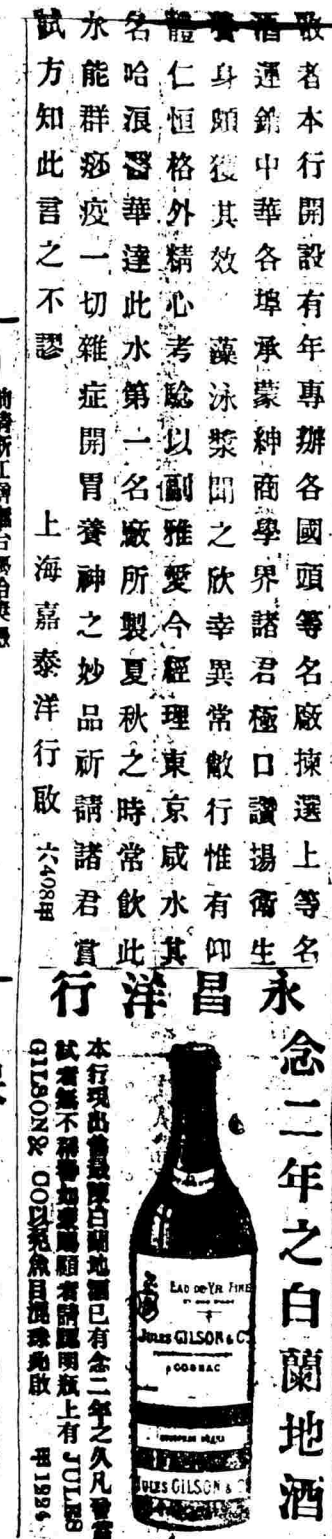 敬者本行開設有年專辦各國頭等名廠揀選上等名
酒運銷中華各埠承蒙紳商學界諸君極口讚揚衛生
養身頗獲其效 藻泳槳聞之欣幸異常敝行惟有仰
體仁恒格外精心考驗以副雅愛今經理東京咸水其
名哈浪醫華達此水第一名廠所製夏秋之時常飲此
水能群痧疫一切雜症開胃養神之妙品祈請諸君賞
試方知此言之不謬 上海嘉泰洋行啟 六408甲
永昌洋行
念二年之白蘭地酒
EAU DE VIE FINE
JULES GILSON & Co
COGNAC
JULES GILSON & C
本行現出舊最陳白蘭地酒已有念二年之久凡嘗
試者無不稱譽如蒙賜顧者請認明瓶上有 JULES
GILSON & CO以免魚目混珠此啟 甲1924